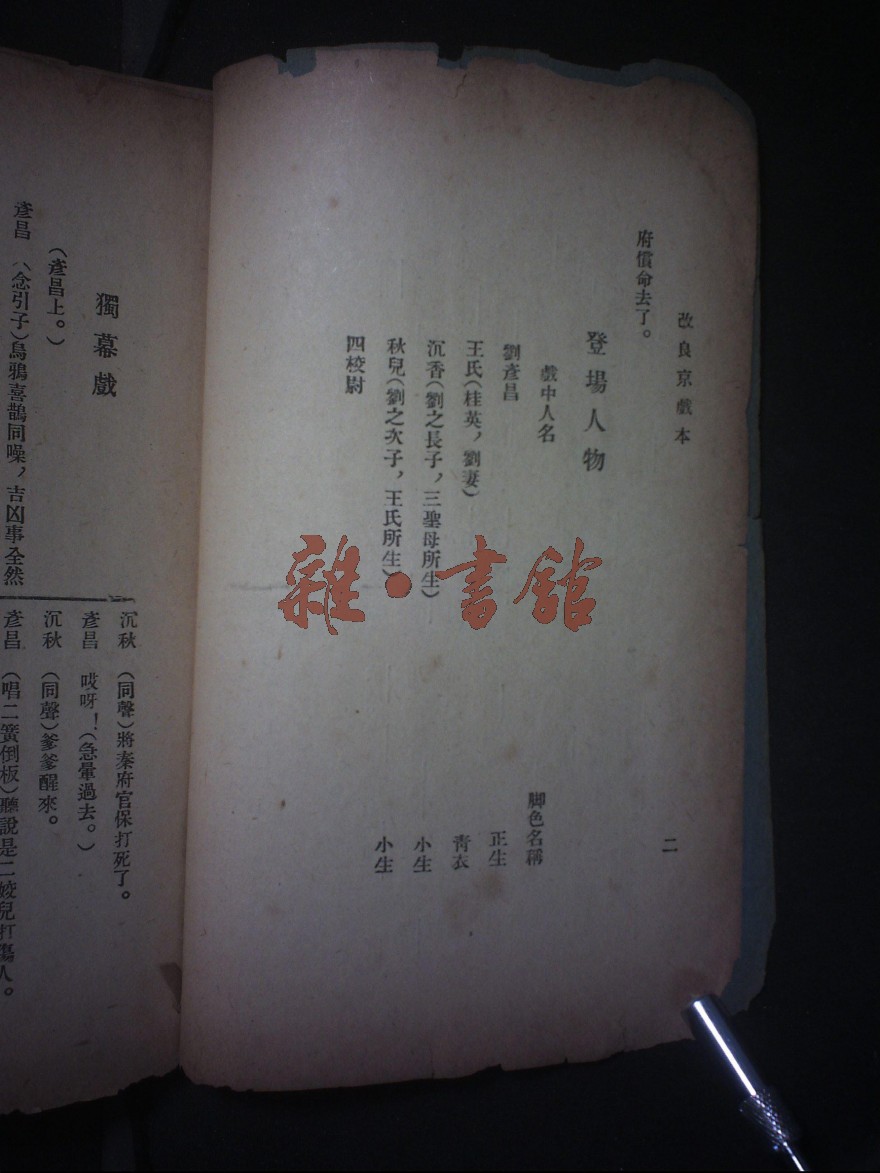 改良京戲本
二
府償命去了。
登場人物
戲中人名
脚色名稱
劉彥昌
正生
王氏(桂英,劉妻)
靑衣
沉香(劉之長子,三聖母所生)
小生
秋兒(劉之次子,王氏所生)
小生
四校尉
雜·書館
獨幕戲
(彥昌上。)
彥昌 (念引子)烏鴉喜鵲同噪,吉凶事全然
沉秋 (同聲)將秦府官保打死了。
彥昌 哎呀!(急暈過去。)
沉秋 (同聲)爹爹醒來。
彥昌 (唱二簧倒板)聽說是二姣兒打傷人。